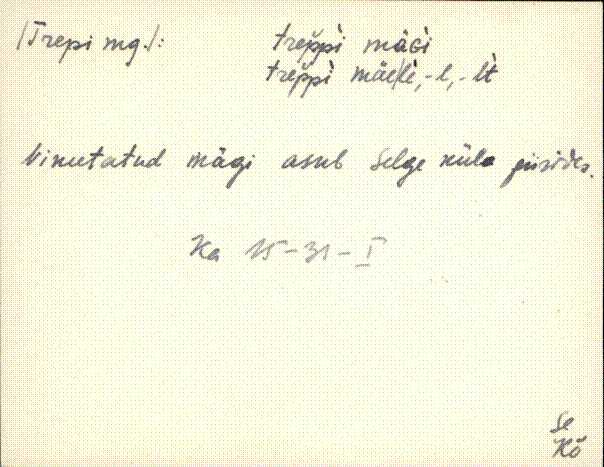 /Trepi mg./: treppì mäGì
treppì mäele, -l, -lt
Nimetatud mägi asub Selge küla piirides.
Ka 15-31-I
Se
Kõ